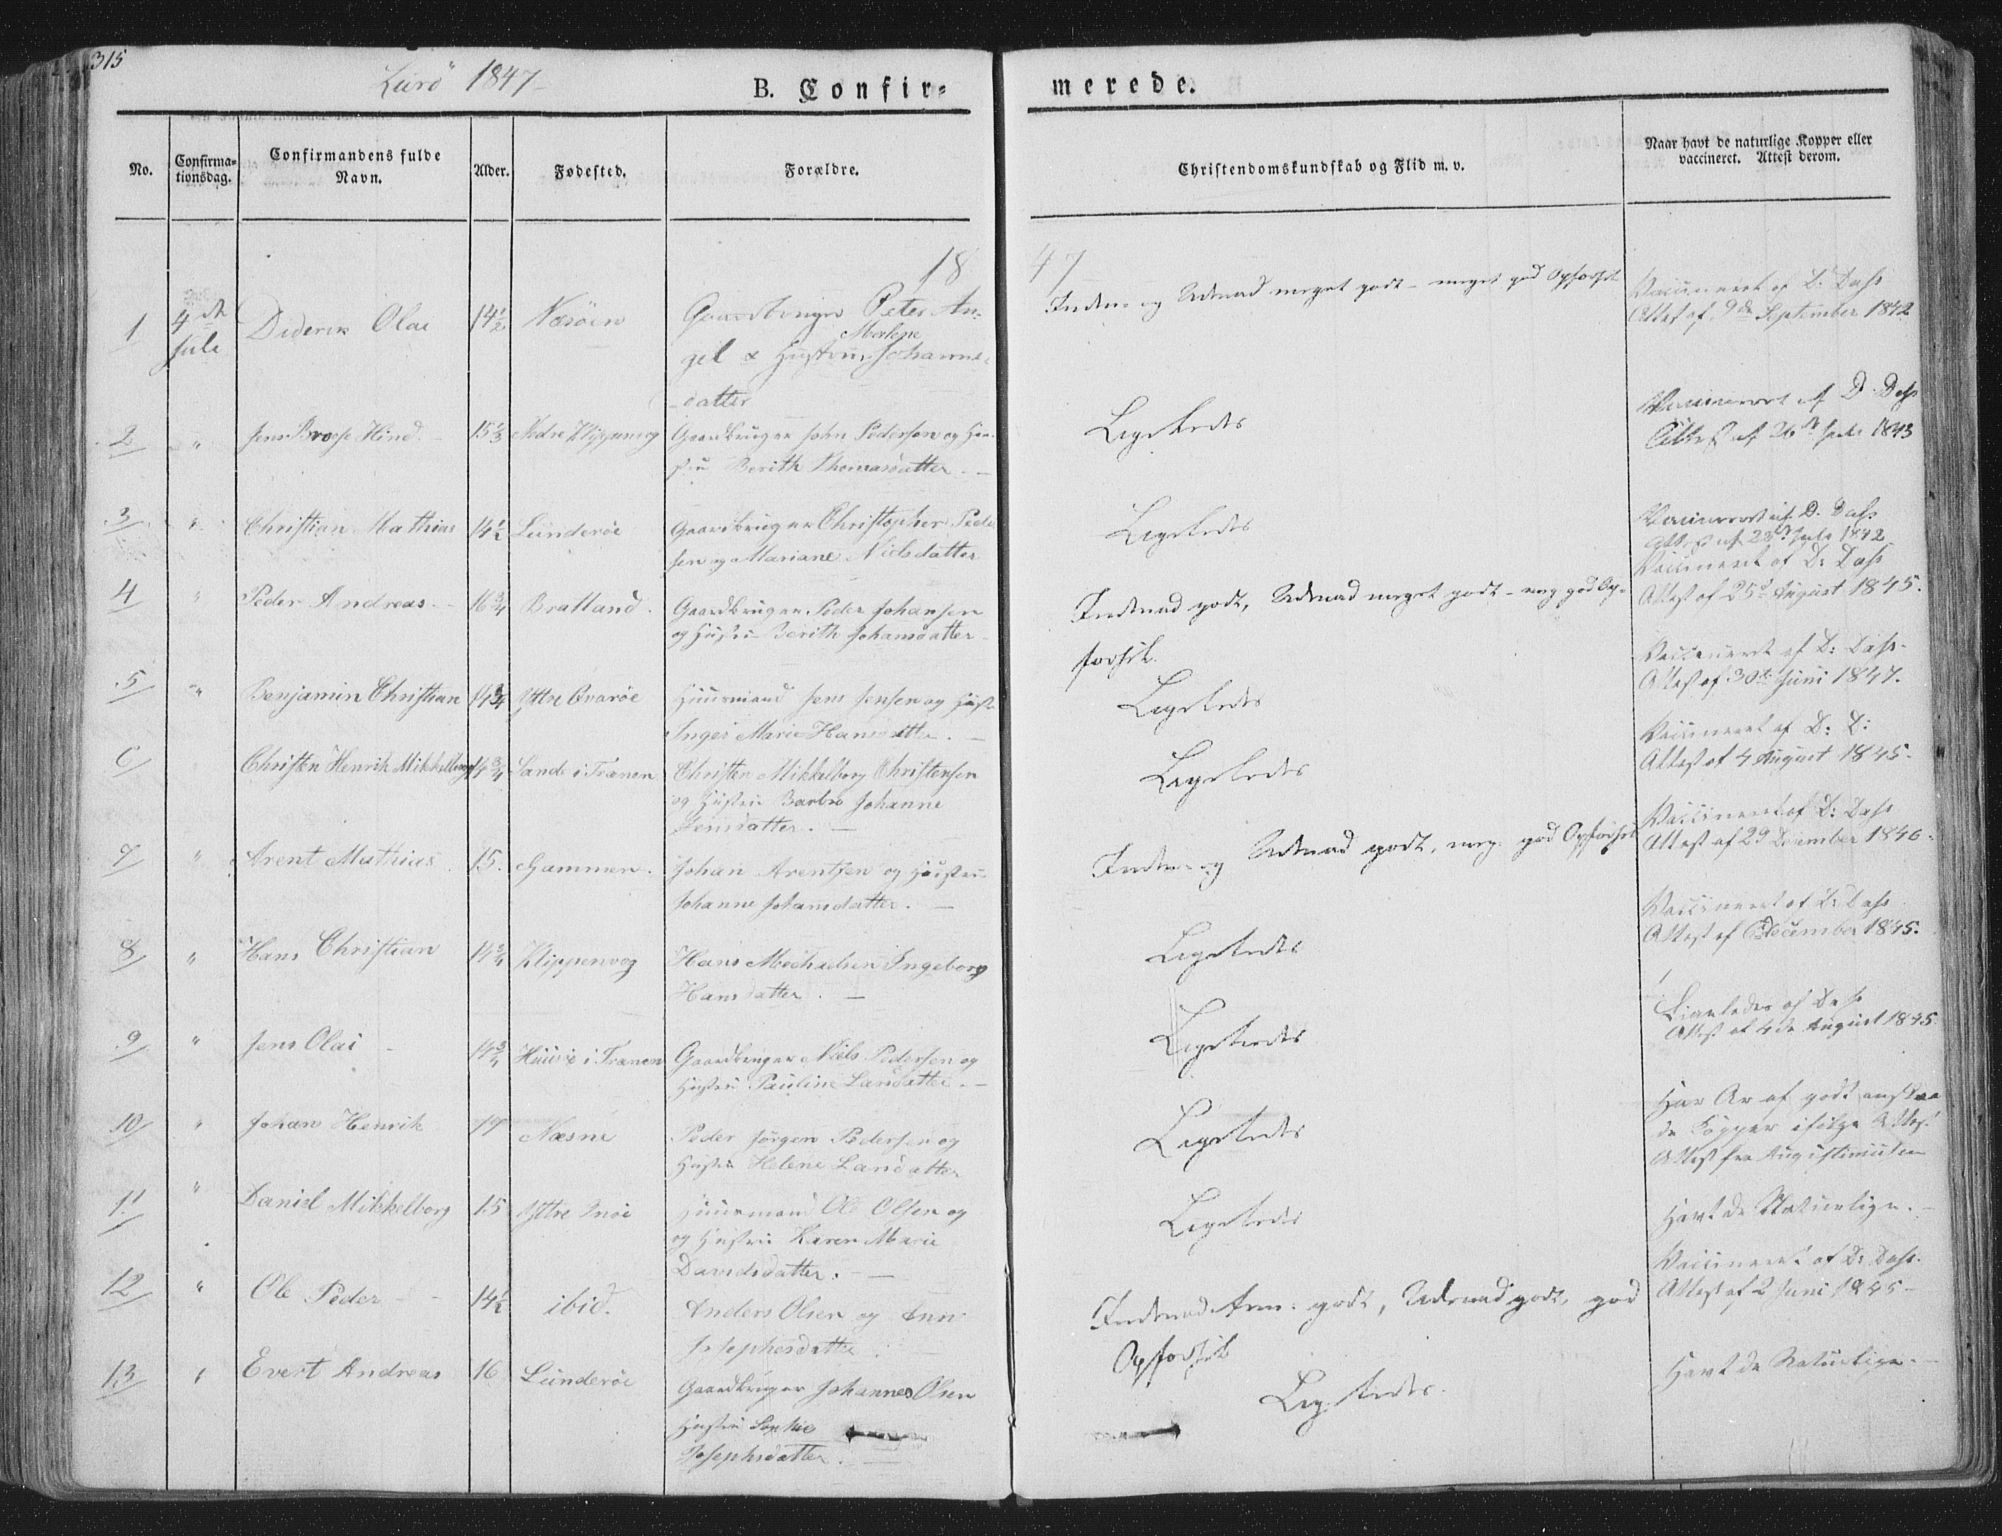 315
Lurö 1847
B. Confir=
merede.
No.
Confirma=
tionsdag.
Confirmandens fulde
Navn.
Alder.
Fødested.
Forældre.
Christendomskundskab og Flid m. v.
Naar havt de naturlige Kopper eller
vaccineret. Attest derom.
18
47
1 4de Diderik Olai 14½ Næsöen Gaardbruger Peter An-
Juli
Malene
gel & Hustrue Johanne
datter
Inden- og Udenad meget godt - meget god Opførsel
Vaccineret af D: Dass
Attest af 9de September 1842
2 " Jens Hind 15⅓ Nedre Klippinwog Gaardbruger John Pedersen og Hu-
stru Berith Thomasdatter. —
Ligeledes
Vaccineret af D. Dass
Attest af 26de Juli 1843
3 " Christian Mathias 14½ Lunderöe Gaardbruger Christopher Peder
sen og Mariane Nielsdatter
Ligeledes
Vaccineret af D. Dass
Attest af 23de Juli 1842
4 " Peder Andreas 16¾ Bratland. Gaardbruger Peder Johansen
og Hustru Berith Johansdatter
Indenad godt, Udenad meget godt - meg god Op-
førsel.
Vaccineret af D: Dass
Attest af 25de August 1845.
5 " Benjamin Christian 14¾ Yttre Qvaröe Huusmand Jens Jensen og Hust
Inger Marie Hansdatter. —
Ligeledes
Vaccineret af D: Dass.
Attest af 30te Juni 1847.
6 Christen Henrik Mikkelborg 14¾ Sande i Trænen Christen Mikkelborg Christensen
og Hustru Barbro Johanne
Jensdatter. —
Ligeledes
Vaccineret af D: D:
Attest af 4 August 1845.
7 " Arent Mathias 15. Gammen. Johan Arentsen og Hustru
Johanne Johansdatter. —
Inden- og Udenad godt, meg. god Opførsel
Vaccineret af D: Dass
Attest af 29 December 1846.
8 " Hans Christian 14¾ Klippenvog Hans Michaelsen Ingeborg
Hansdatter. —
Ligeledes
Vaccineret af D: Dass
Attest af December 1845.
9 " Jens Olai 14¾ Huusöe i Trænen Gaardbruger Niels Pedersen og
Hustru Pauline Larsdatter. —
Ligeledes
Ligeledes af Dass
Attest af 4de August 1845
10 " Johan Henrik 19 Næsne Peder Jörgen Pedersen og
Hustru Helene Larsdatter
Ligeledes
Har Ar af godt
de Kopper ifølge Attest
Attest fra
11 " Daniel Mikkelborg 15 Yttre Huusmand Ole Olsen og
og Hustru Karen Marie
Davidsdatter. —
Ligeledes
Havt de Naturlige. —
12 " Ole Peder 14½ ibid. Anders Olsen og Ann
Josephsdatter. —
Indenad godt, Udenad godt, god
Opførsel
Vaccineret af D: Dass.
Attest af 2 Juni 1845
13 " Evert Andreas 16 Lunderöe Gaardbruger Johannes Olsen
Hustru Sophie
Josephsdatter. —
Ligeledes.
Havt de Naturlige. —